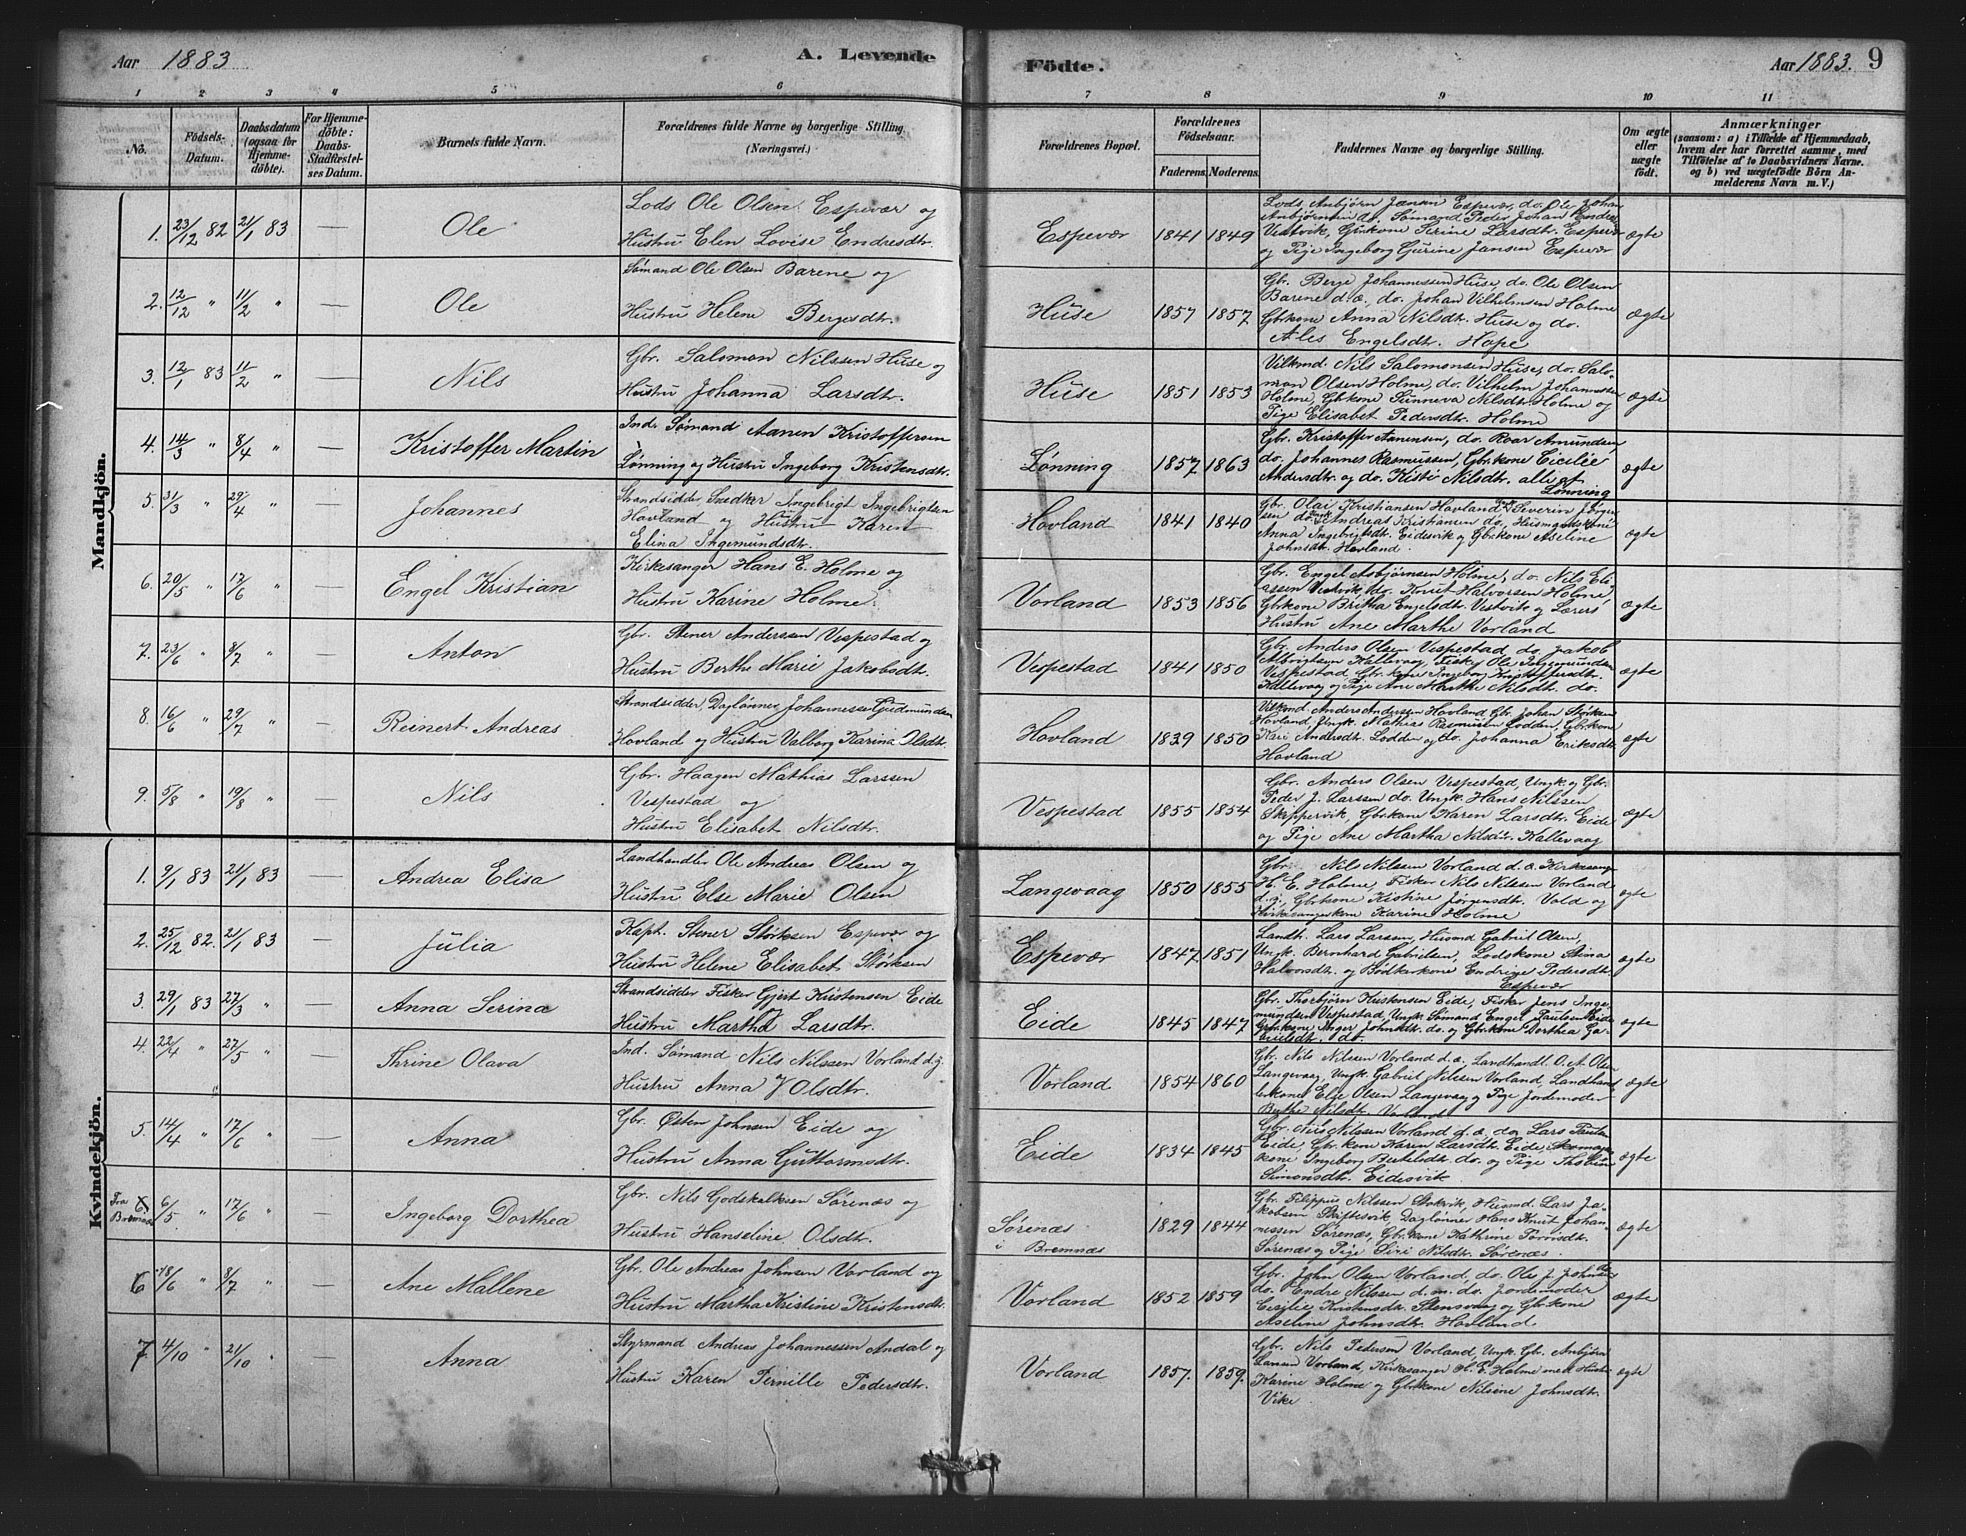 Aar 1883 A. Levende Födte. Aar 1883. 9
1 2 3 4 5 6 7 8 9 10 11
No. Födsels-Datum. Daabsdatum (ogsaa for Hjemmedöbte). For Hjemmedöbte: Daabs-Stadfestelses Datum. Barnets fulde Navn. Forældrenes fulde Navne og borgerlige Stilling. (Næringsvei.) Forældrenes Bopæl. Forældrenes Födselsaar. Faderens. Moderens. Faddernes Navne og borgerlige Stilling. Om ægte eller uægte födt. Anmærkninger
(saasom: a) i Tilfælde af Hjemmedaab,
hvem der har forrettet samme, med
Tilföielse af to Daabsvidners Navne.
og b) ved uægtefödte Börn An-
melderens Navn m. V.)
Mandkjön.
1. 23/12 82 21/1 83 — Ole
Lods Ole Olsen Espevær og
Hustru Elen Lovise Endresdtr.
Espevær 1841 1849
Lods Asbjörn Jansen Espevær, do. Ole Johan
Asbjörnsen do. Sømand Peder Johan Endres
Vestvik, Gbrkone Serine Larsdtr. Espevær
og Pige Ingeborg Gurine Jansen Espevær
ægte
2. 12/12 " 11/2 " — Ole
Sømand Ole Olsen Barene og
Hustru Helene Bergesdtr.
Huse 1857 1857
Gbr. Berge Johannessen Huse, do. Ole Olsen
Barene d.æ., do. Johan Vilhelmsen Holme
Gbrkone Anna Nilsdtr. Huse og do.
Ales Engelsdtr. Hope
ægte
3. 12/1 83 11/2 " — Nils
Gbr. Salomon Nilssen Huse og
Hustru Johanna Larsdtr.
Huse 1851 1853
Vilkmd. Nils Salomonsen Huse, do. Salo-
mon Olsen Holme, do. Vilhelm Johannessen
Holme, Gbrkone Sunneva Nilsdtr. Holme og
Pige Elisabet Pedersdtr. Holme
ægte
4. 14/3 " 8/4 " — Kristoffer Martin
Inds. Sømand Aanen Kristoffersen
Lønning og Hustru Ingeborg Kristensdtr.
Lønning 1857 1863
Gbr. Kristoffer Aanensen, do. Roar Amundsen,
do. Johannes Rasmussen, Gbrkone Cicilie
Andersdtr. og do. Kisti Nilsdtr. alle af
Lønning
ægte
5. 31/3 " 29/4 " — Johannes
Strandsidder Snedker Ingebrigt Ingebrigtsen
Hovland og Hustru Karen
Elina Ingemundsdtr.
Hovland 1841 1840
Gbr. Olai Kristiansen Hovland Severin Jörgen-
sen do. Andreas Kristiansen do, Husmandskone
Anna Ingebrigtsdtr. Eidesvik og Gbrkone Aseline
Johnsdtr. Hovland.
ægte
6. 20/5 " 17/6 " — Engel Kristian
Kirkesanger Hans E. Holme og
Hustru Karine Holme.
Vorland 1853 1856
Gbr. Engel Asbjørnsen Holme, do. Nils Eli-
assen Vestvik, do. Knut Halvorsen Holme,
Gbrkone Britha Engelsdtr. Vestvik og Lærers
Hustru Ane Marthe Vorland
ægte
7. 23/6 " 8/7 " — Anton
Gbr. Stener Andersen Vespestad og
Hustru Berthe Marie Jakobsdtr.
Vespestad 1841 1850
Gbr. Anders Olsen Vespestad do. Jakob
Albrigtsen Kallevaag, Fisker Ole Ingemundsen
Vespestad, Gbrkone Ingeborg Kristoffersdtr.
Kallevaag og Pige Ane Marthe Nilsdtr. do.
ægte
8. 16/6 " 29/7 " — Reinert Andreas
Strandsidder, Daglønner Johannes Gudmundsen
Hovland og Hustru Valborg Karina Olsdtr.
Hovland 1839 1850
Vilkmd. Anders Andersen Hovland Gbr. Johan Størksen
Hovland, Ungk. Mathias Rasmussen Lodden, Gbrkone
Kari Andersdtr. Lodden og do. Johanna Eriksdtr.
Hovland
ægte
9. 5/8 " 19/8 " — Nils
Gbr. Haagen Mathias Larssen
Vespestad og
Hustru Elisabet Nilsdtr.
Vespestad 1855 1854
Gbr. Anders Olsen Vespestad, Ungk. og Gbr.
Peder J. Larssen do. Ungk. Hans Nilssen
Skippervik, Gbrkone Karen Larsdtr. Eide
og Pige Ane Martha Nilsdtr. Kallevaag
ægte
Kvindekjön.
1. 9/1 83 21/1 83 — Andrea Elisa
Landhandler Ole Andreas Olsen og
Hustru Else Marie Olsen
Langevaag 1850 1855
Gbr. Nils Nilssen Vorland d.æ. Kirkesang.
H. E. Holme, Fisker Nils Nilssen Vorland
d.y., Gbrkone Kistine Jørgensdtr. Vold og
Kirkesangerkone Karine Holme
ægte
2. 25/12 82. 21/1 83 — Julia
Kapt. Stener Størksen Espevær og
Hustru Helene Elisabet Størksen
Espevær 1847 1851
Landh. Lars Larsen, Husmd Gabriel Olsen,
Ungk. Bernhard Gabrielsen, Lodskone Stina
Halvorsdtr. og Bødkerkone Endrige Pedersdtr.
Espevær
ægte
3. 29/1 83 27/3 " — Anna Serina
Strandsidder Fisker Gjert Kristensen Eide
og
Hustru Martha Larsdtr.
Eide 1845 1847
Gbr. Thorbjörn Kristensen Eide, Fisker Jens Inge-
mundsen Vespestad, Ungk. Sømand Engel Paulsen Eide
Gbrkone Inger Johnsdtr. do. og Gbrkone Dorthea Ga-
brielsdtr. do.
ægte
4. 22/4 " 27/5 " — Thrine Olava
Ind. Sømand Nils Nilssen Vorland d.y.
Hustru Anna Olsdtr.
Vorland 1854 1860
Gbr. Nils Nilssen Vorland d.æ. Landhandl. O. A. Olsen
Langevaag, Ungk. Gabriel Nilssen Vorland, Landhand-
lerkone Else Olsen Langevaag og Pige Jordemoder
Berthe Nilsdtr. Vorland
ægte
5. 14/4 " 17/6 " — Anna
Gbr. Østen Johnsen Eide og
Hustru Anna Guttormsdtr.
Eide 1834 1845
Gbr. Nils Nilssen Vorland d.æ. do. Lars Paulsen
Eide, Gbrkone Karen Larsdtr. Eide,
kone Ingeborg Bertelsdtr. do. og Pige
Simonsdtr. Eidesvik
ægte
Fra
Bremnæs
6. 6/5 " 17/6 " — Ingeborg Dorthea
Gbr. Nils Godskalksen Sørenæs og
Hustru Hanseline Olsdtr.
Sørenæs
i Bremnæs
1829 1844
Gbr. Filippus Nilssen Stokvik, Husmd. Lars Ja-
kobsen Skiftesvik, Daglønner Hans Knut Johan-
nessen Sørenæs, Gbrkone Kathrine Tormsdtr.
Sørenæs og Pige Siri Nilsdtr. Sørenæs.
ægte
6 18/6 " 8/7 " — Ane Mallene
Gbr. Ole Andreas Johnsen Vorland og
Hustru Martha Kristine Kristensdtr.
Vorland 1852 1859
Gbr. John Olsen Vorland, do. Ole J. Johnsen
do. Endre Nilssen d.m. do. Jordemoder
Cecilie Kristensdtr. Stensvaag og Gbrkone
Aseline Johnsdtr. Hovland
ægte
7. 4/10 " 21/10 " — Anna
Styrmand Andreas Johannessen Andal og
Hustru Karen Pernille Pedersdtr.
Vorland 1857. 1859.
Gbr. Nils Pedersen Vorland, Ungk. Gbr. Asbjörn
Larsen Vorland, Kirkesanger H. E. Holme med Hustru
Karine Holme og Gbrkone Nilsine Johnsdtr.
Vike
ægte